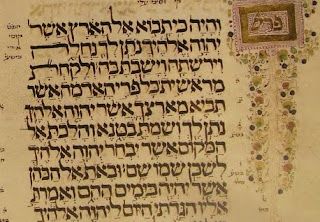 פרש
והיה כי תבוא אל הארץ אשר
יהוה אלהיך נתן לך נחלה
וירשתה וישבת בה ולקחת
מראשית כל פרי האדמה אשר
תביא מארצך אשר יהוה אלהיך
נתן לך ושמת בטנא והלכת אל
המקום אשר יבחר יהוה אלהיך
לשכן שמו שם ובאת אל הכהן
אשר יהיה בימים ההם ואמרת
אליו הגדתי היום ליהוה אלהיך